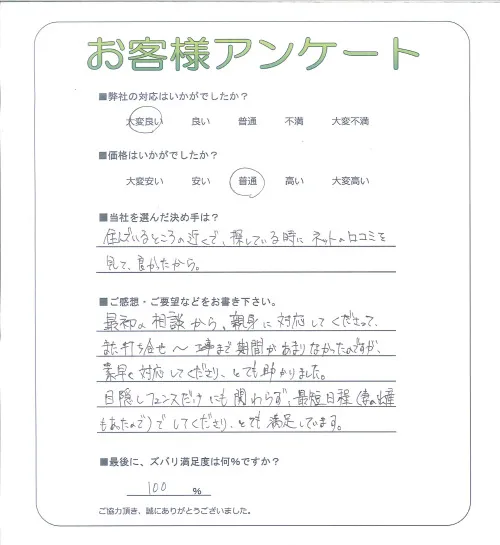 お客様アンケート
■弊社の対応はいかがでしたか？
大変良い 良い 普通 不満 大変不満
■価格はいかがでしたか？
大変安い 安い 普通 高い 大変高い
■当社を選んだ決め手は？
住んでいるところの近くで、探している時に ネットの口コミを
見て、良かったから。
■ご感想・ご要望などをお書き下さい。
最初の相談から、親身に対応してくださって、
また打ち合せ～工事まで期間があまりなかったのですが、
素早く対応してくださり、とても助かりました。
目隠しフェンスだけにも関わらず、最短日程(妻の
もあったので)でしてくださり、とても満足しています。
■最後に、ズバリ満足度は何％ですか？
100 %
ご協力頂き、誠にありがとうございました。